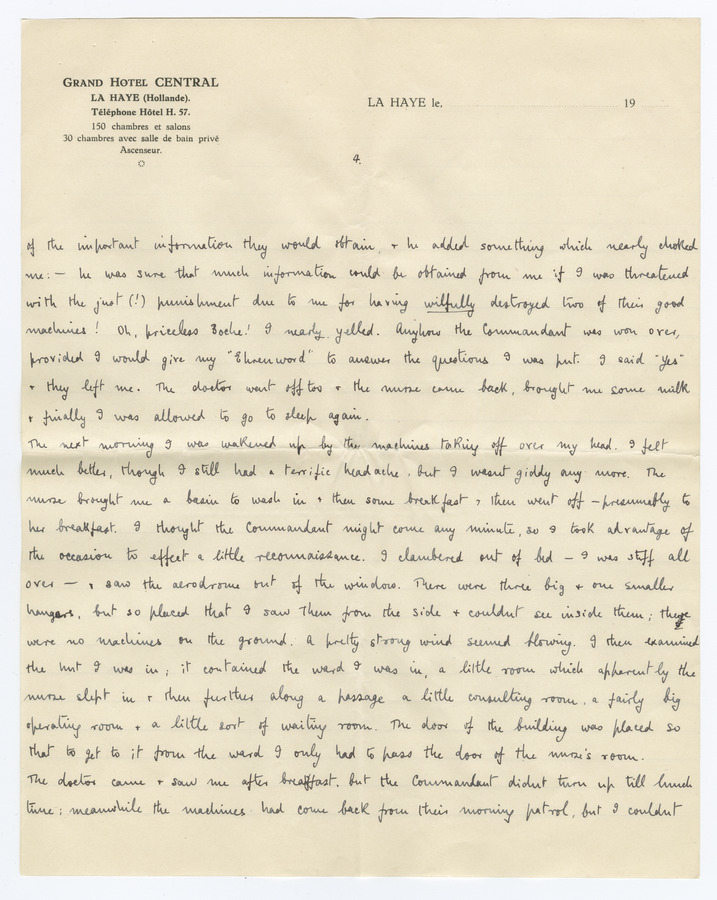 GRAND HOTEL CENTRAL
LA HAYE (Hollande).
Téléphone Hôtel H. 57.
150 chambres et salons
30 chambres avec salle de bain privé
Ascenseur.
LA HAYE le, 19
4.
of the important information they would obtain, + he added something which nearly choked
me:— he was sure that much information could be obtained from me if I was threatened
with the just (!) punishment due to me for having wilfully destroyed two of their good
machines! Oh, priceless Boche! I nearly yelled. Anyhow the Commandant was won over,
provided I would give my "Ehrenword" to answer the questions I was put. I said "Yes"
+ they left me. The doctor went off too + the nurse came back, brought me some milk
+ finally I was allowed to go to sleep again.
The next morning I was wakened up by the machines taking off over my head. I felt
much better, though I still had a terrific headache, but I wasnt giddy any more. The
nurse brought me a basin to wash in + then some breakfast, then went off – presumably to
her breakfast. I thought the Commandant might come any minute, so I took advantage of
the occasion to effect a little reconnaissance. I clambered out of bed – I was stiff all
over — + saw the aerodrome out of the window. There were three big + one smaller
hangars, but so placed that I saw them from the side + couldnt see inside them; there
were no machines on the ground. A pretty strong wind seemed blowing. I then examined
the hut I was in; it contained the ward I was in, a little room which apparently the
nurse slept in + then further along a passage a little consulting room, a fairly big
operating room + a little sort of waiting room. The door of the building was placed so
that to get to it from the ward I only had to pass the door of the nurse's room.
The doctor came + saw me after breakfast, but the Commandant didnt turn up till lunch
time; meanwhile the machines had come back from their morning patrol, but I couldnt